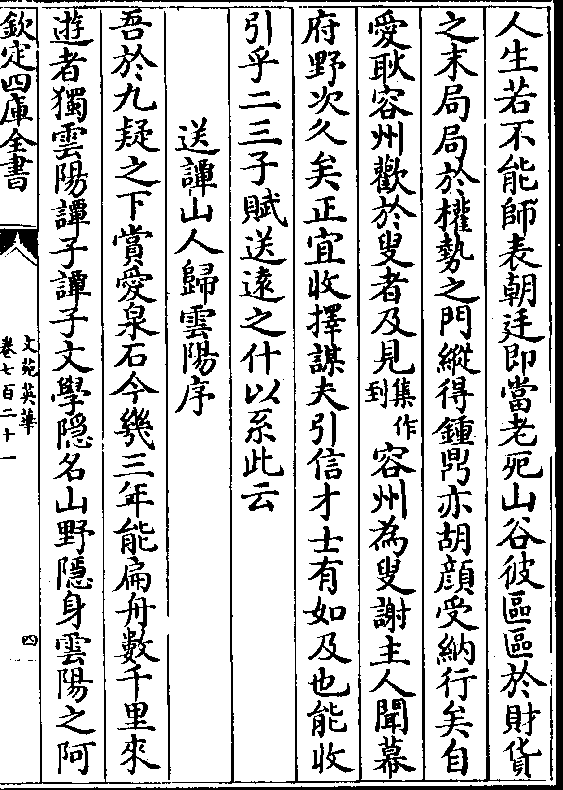 人生若不能師表朝廷即當老死山谷彼區區於財貨
之末局局於權勢之門縱得鍾鼎亦胡顔受納行矣自
愛耿容州歡於叟者及見集作到容州為叟謝主人聞幕
府野次久矣正宜收擇謀夫引信才士有如及也能收
引乎二三子賦送遠之什以系此云
送譚山人歸雲陽序
吾於九疑之下賞愛泉石今㡬三年能扁舟數千里來
遊者獨雲陽譚子譚子文學隠名山野隱身雲陽之阿
欽定四庫全書
文苑英華
卷七百二十一
四